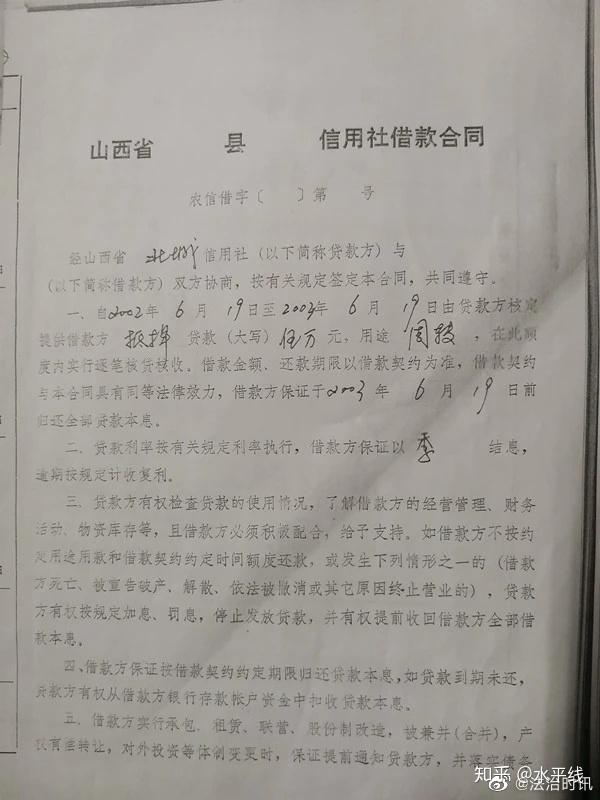 山西省 县 信用社借款合同
农信借字〔 〕第 号
经山西省 北城 信用社(以下简称贷款方)与
(以下简称借款方)双方协商,按有关规定签定本合同,共同遵守。
一、自2002年 6 月 19日至2003年 6 月 19日由贷款方核定
提供借款方 抵押 贷款(大写)伍万 元,用途 周转 ,在此额
度内实行逐笔核贷核收。借款金额、还款期限以借款契约为准,借款契约
与本合同具有同等法律效力,借款方保证于2003 年 6 月 19 日前
归还全部贷款本息。
二、贷款利率按有关规定利率执行,借款方保证以 季 结息,
逾期按规定计收复利。
三、贷款方有权检查贷款的使用情况,了解借款方的经营管理、财务
活动、物资库存等,且借款方必须积极配合,给予支持。如借款方不按约
定用途用款和借款契约约定时间额度还款,或发生下列情形之一的(借款
方死亡、被宣告破产、解散、依法被撤消或其它原因终止营业的),贷款
方有权按规定加息、罚息,停止发放贷款,并有权提前收回借款方全部借
款本息。
四、借款方保证按借款契约约定期限归还贷款本息,如贷款到期未还,
贷款方有权从借款方银行存款帐户资金中扣收贷款本息。
五、借款方实行承包、租赁、联营、股份制改造,被兼并(合并),产
权有偿转让,对外投资等体制变更时,保证提前通知贷款方,并落实债务
知乎 @水平线
@法治时讯